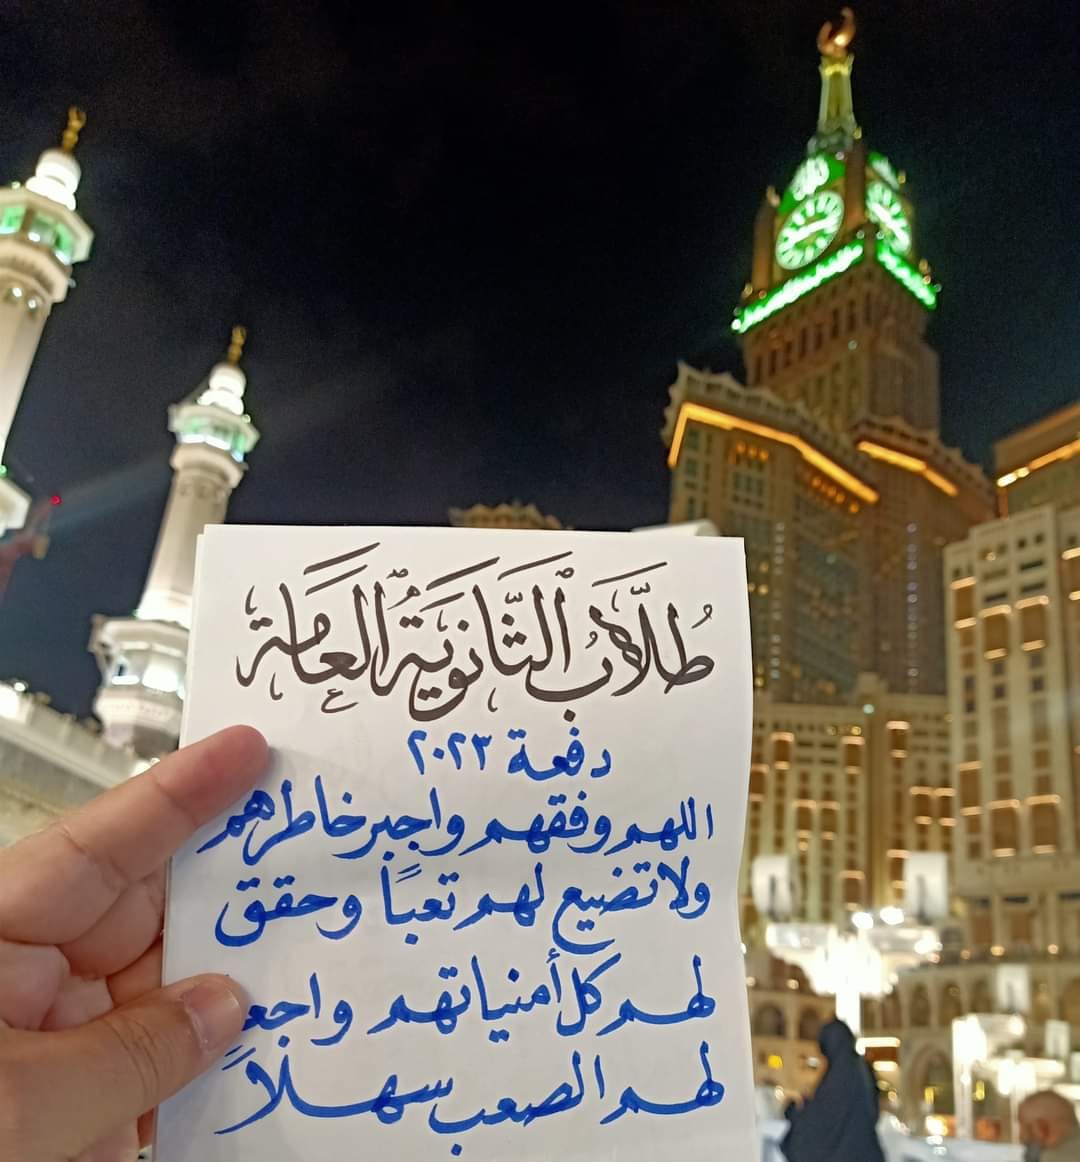 طُلَّابُ الثَّانَوِيَّةُ العَامَة
دفعة ٢٠٢٣
اللهم وفقهم واجبر خاطرهم
ولا تضيع لهم تعباً وحقق
لهم كل أمنياتهم واجع
لهم الصعب سهلاً